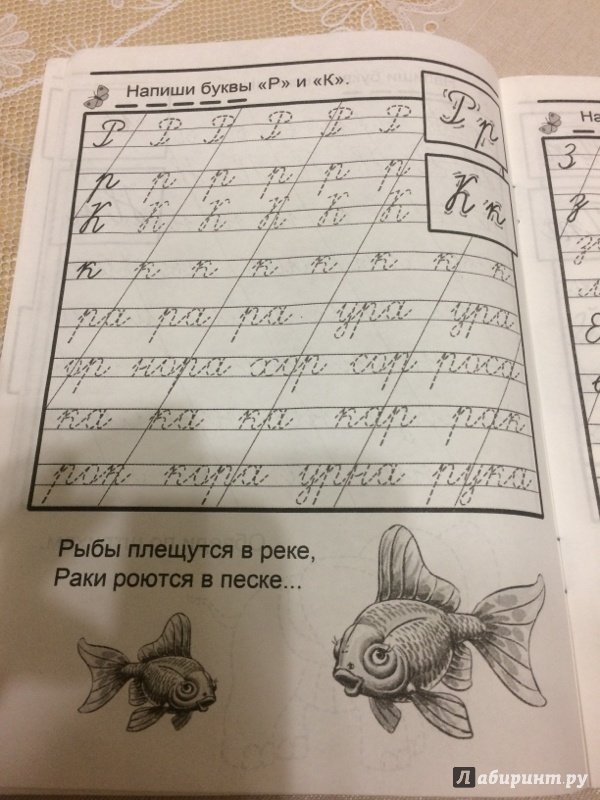 Напиши буквы «Р» и «К».
Р Р Р Р Р Р
Р р
р р р р р р
К К К К К К
К к
к к к к к к к к
ра ра ра ура ура
ор нора хор сор роса
ка ка ка кар рак
рок кора урна рука
Рыбы плещутся в реке,
Раки роются в песке...
На
З
з
Лабиринт.ру